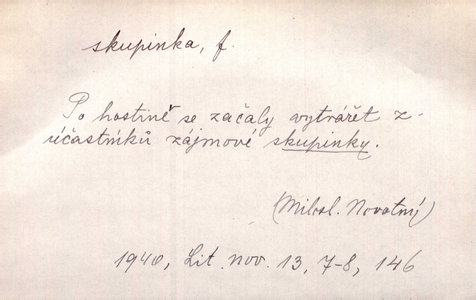 skupinka, f.
Po hostině se začaly vytvářet z
účastníků zájmové skupinky.
(Milosl. Novotný)
1940, Lit. nov. 13, 7-8, 146